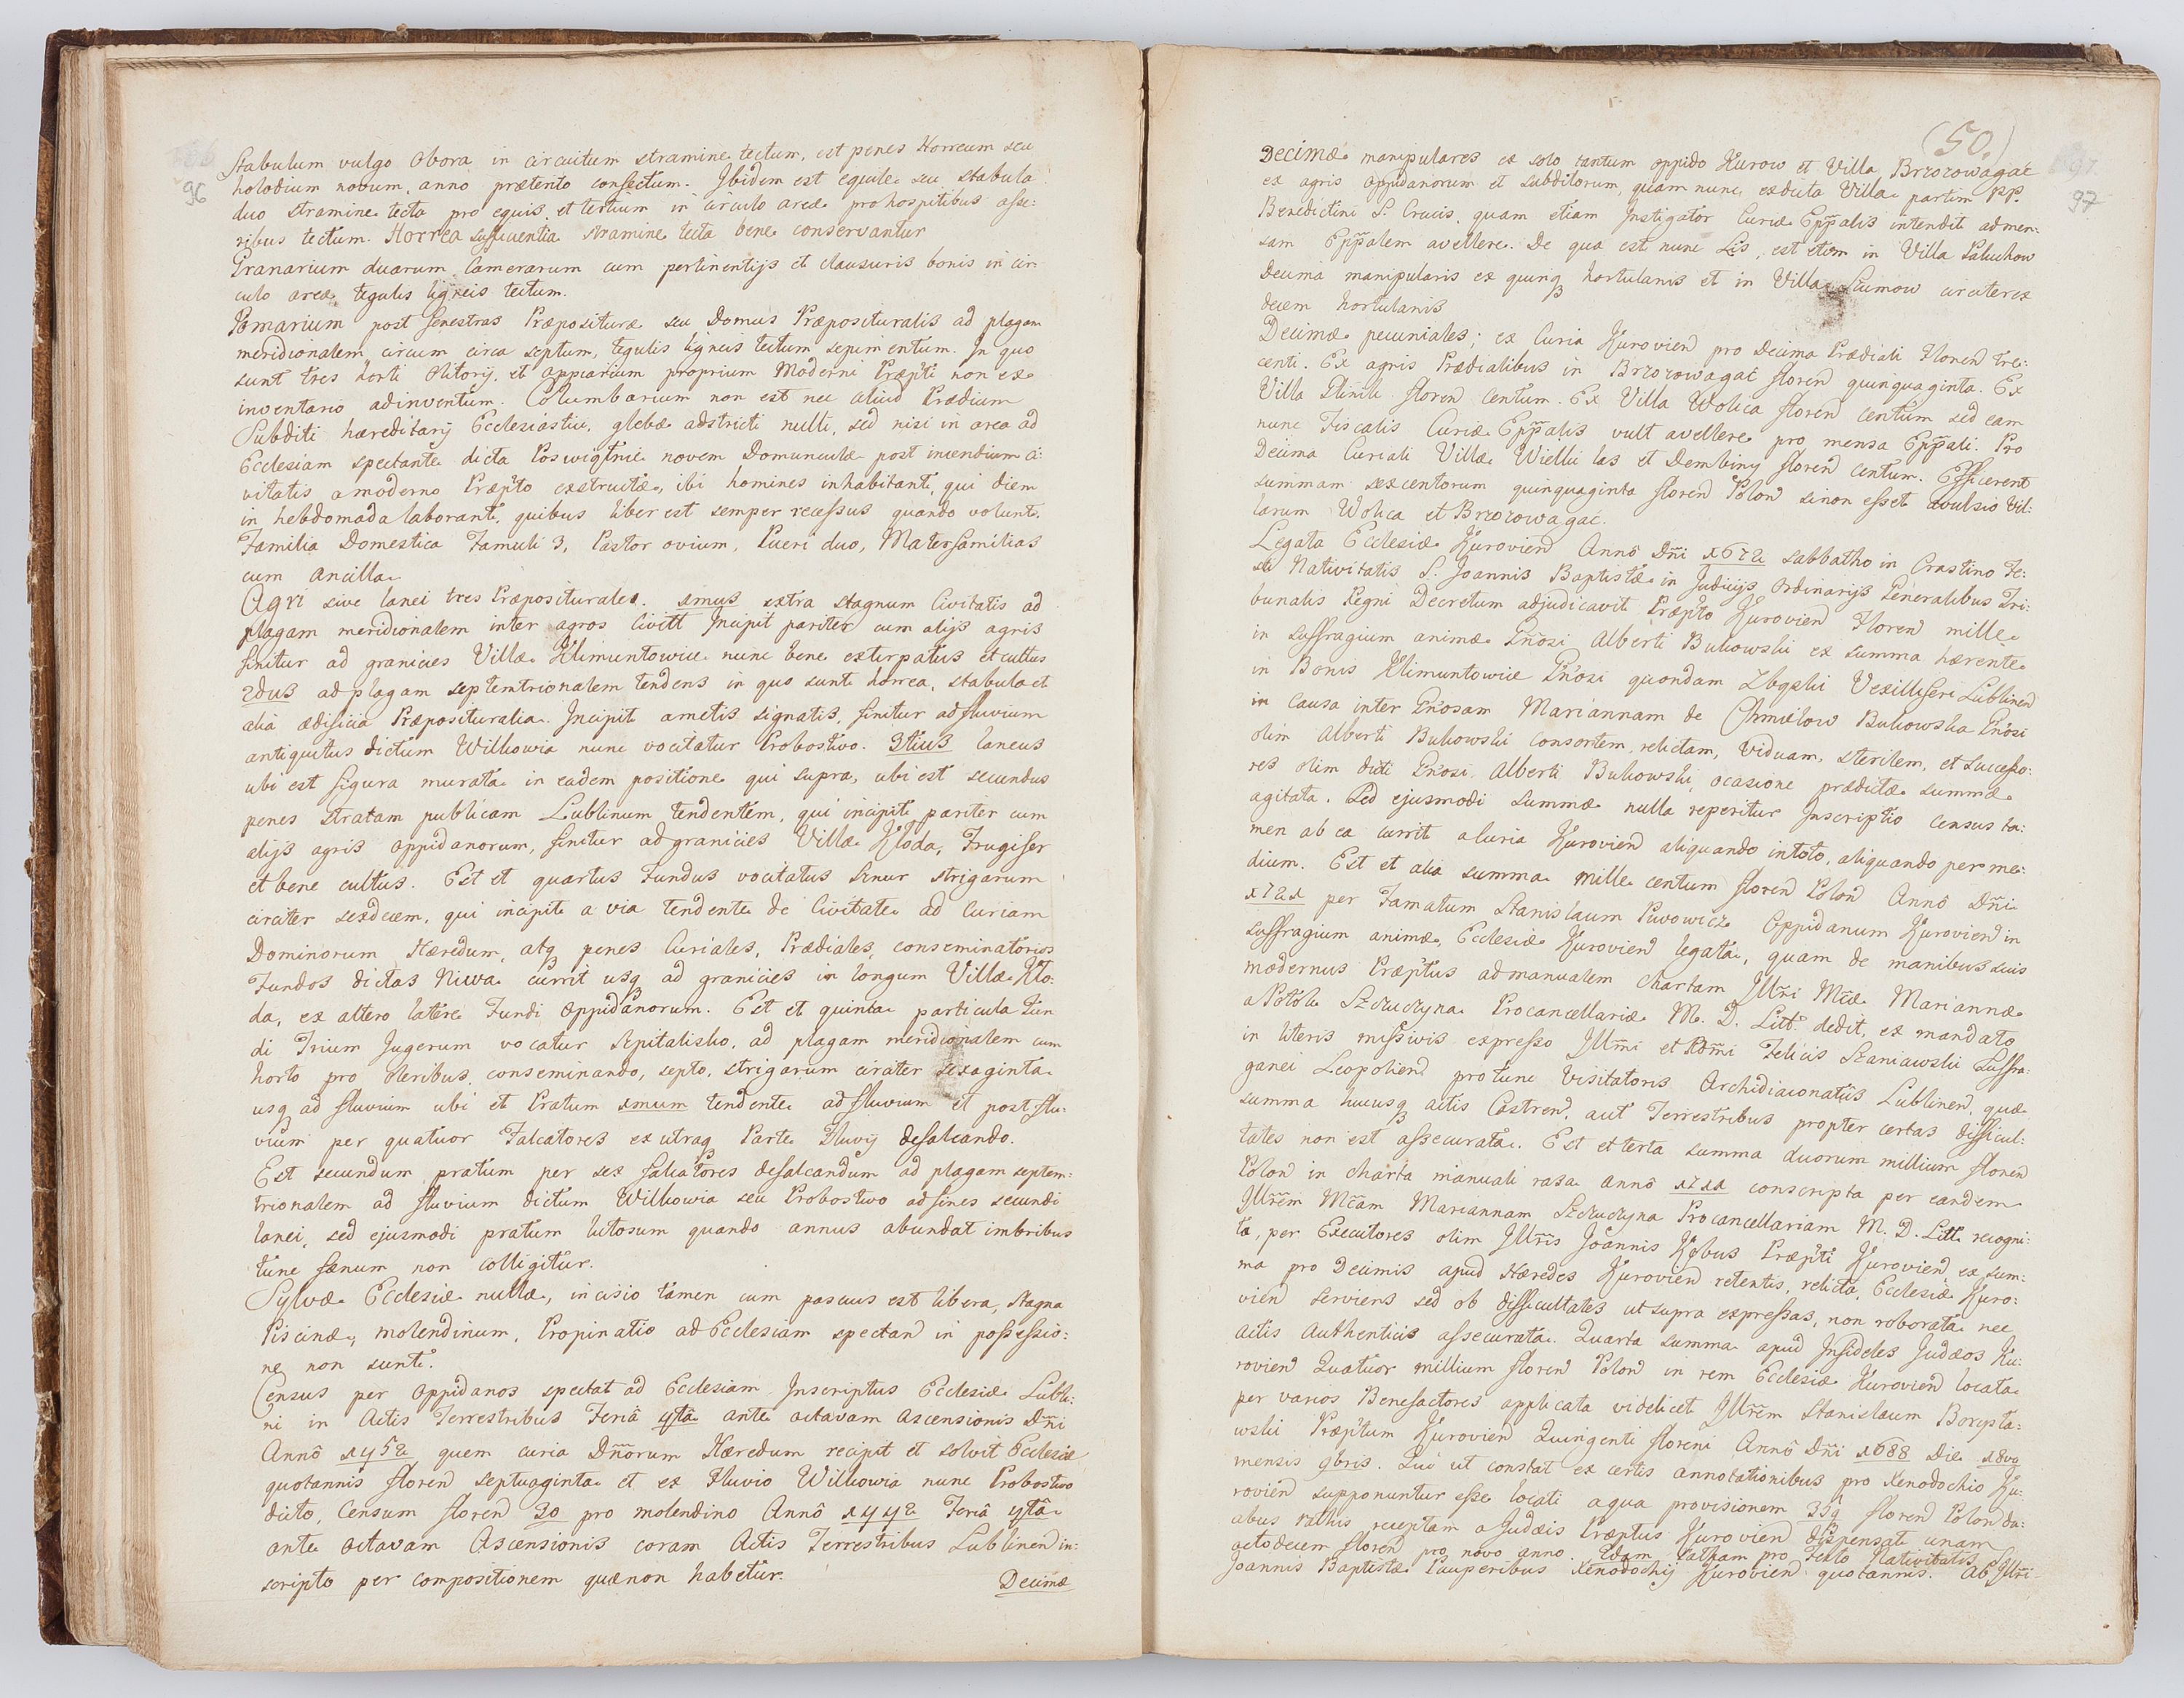 96
Stabulum vulgo Obora in circuitum stramine tectum, est penes Horreum seu
holodium novum, anno præterito confectum. Ibidem est equile seu stabula
duo stramine tecta pro equis, et tertium in circulo areæ pro hospitibus asse:
ribus tectum. Horrea sufficientia stramine tecta bene conservantur
Granarium duarum Camerarum cum pertinentijs et clausuris bonis in cir
culo areæ, tegulis ligneis tectum.
Pomarium post fenestras Præposituræ seu Domus Præposituralis ad plagam
meridionalem, circum circa septum, tegulis ligneis tectum sepimentum. In quo
sunt tres horti Olitorij, et appiarium proprium Moderni Præpti non ex
inventario adinventum. Columbarium non est nec aliud Prædium
Subditi hæreditarij Ecclesiastici, glebæ adstricti nulli, sed nisi in area ad
Ecclesiam spectante dicta Poswiętnie novem Domunculæ post incendium Ci:
vitatis a moderno Præpto exstructæ, ibi homines inhabitant, qui diem
in hebdomada laborant, quibus liber est semper recessus quando volunt.
Familia Domestica Famuli 3, Pastor ovium, Pueri duo, Materfamilias
cum ancilla
Agri sive lanei tres Præpositurales. 1mus extra stagnum Civitatis ad
plagam meridionalem inter agros Civitt Incipit pariter cum alijs agris
finitur ad granicies Villæ Klimuntowice nunc bene extirpatus et cultus
2dus ad plagam septemtrionalem tendens in quo sunt horrea, stabula et
alia ædificia Præposituralia. Incipit a metis signatis, finitur ad fluvium
antiquitus dictum Wilkowia nunc vocitatur Probostwo. 3tius laneus
ubi est figura murata in eadem positione qui supra, ubi est secundus
penes stratam publicam Lublinum tendentem, qui incipit pariter cum
alijs agris oppidanorum, finitur ad granicies Villæ Kłoda, Frugifer
et bene cultus. Est et quartus Fundus vocitatus Sznur strigarum
circiter sexdecem, qui incipit a via tendente de Civitate ad Curiam
Dominorum Hæredum, atq penes Curiales, Prædiales, conseminatorios
Fundos dictos Niwa currit usq ad granicies in longum Villæ Kło:
da, ex altero latere Fundi oppidanorum. Est et quinta particula Fun
di Trium Jugerum vocatur Szpitalisko, ad plagam meridionalem cum
horto pro oleribus conseminando, septo, strigarum circiter sexaginta
usq ad fluvium ubi et Pratum 1mum tendente ad fluvium et post flu:
vium per quatuor Falcatores ex utraq Parte Fluvij defalcando.
Est secundum pratum per sex falcatores defalcandum ad plagam septem:
trionalem ad fluvium dictum Wilkowia seu Probostwo ad fines secundi
lanei, sed ejusmodi pratum lutosum quando annus abundat imbribus
tunc fænum non colligitur.
Sylvæ Ecclesiæ nullæ, incisio tamen cum pascuis est libera, stagna
Piscinæ, molendinum, Propinatio ad Ecclesiam spectan in possessio:
ne non sunt.
Census per Oppidanos spectat ad Ecclesiam Inscriptus Ecclesiæ Lubli:
ni in Actis Terrestribus Feriâ 4tâ ante octavam Ascensionis Dni
Annô 1452 quem curia Dnorum Hæredum recipit et solvit Ecclesiæ
quotannis floren septuaginta et ex Fluvio Wilkowia nunc Probostwo
dicto, Censum floren 20 pro molendino Annô 1442 Feriâ 4tâ
ante octavam Ascensionis coram Actis Terrestribus Lublinen in:
scripto per compositionem quæ non habetur.
Decimæ
(50.)
97
Decimæ manipulares ex solo tantum oppido Kurow et Villa Brzozowagać
ex agris oppidanorum et subditorum, quam nunc exducta Villa partim PP.
Benedictini S. Crucis, quam etiam Instigator Curiæ Eppalis intendit ad men:
sam Eppalem avellere. De qua est nunc Lis, est etiam in Villa Płuchow
Decima manipularis ex quinq hortulanis et in Villa Szumow circiter ex
decem hortulanis
Decimæ pecuniales; ex Curia Kurovien pro Decima Prædiali Floren tre:
centi. Ex agris Prædialibus in Brzozowagać floren quinquaginta. Ex
Villa Płonki floren Centum. Ex Villa Wolica floren centum sed eam
nunc Fiscalis Curiæ Eppalis vult avellere pro mensa Eppali. Pro
Decima Curiali Villæ Wielki las et Dembiny floren Centum. Efficerent
summam sexcentorum quinquaginta floren Polon si non esset avulsio Vil:
larum Wolica et Brzozowagać.
Legata Ecclesiæ Kurovien Annô Dni 1672 sabbatho in Crastino Fe:
sti Nativitatis S. Joannis Baptistæ in Judicijs Ordinarijs Generalibus Tri:
bunalis Regni Decretum adjudicavit Præpto Kurovien Floren mille
in suffragium animæ Gnosi Alberti Bukowski ex summa hærente
in Bonis Klimuntowice Gnosi quondam Zbąski Vexilliferi Lublinen
in Causa inter Gnosam Mariannam de Chmielow Bukowska Gnosi
olim Alberti Bukowski Consortem, relictam, Viduam, sterilem, et Successo:
res olim dicti Gnosi Alberti Bukowski, ocasione prædictæ summæ
agitata. Sed ejusmodi summæ nulla reperitur Inscriptio Census ta:
men ab ea currit a Curia Kurovien aliquando in toto, aliquando per me:
dium. Est et alia summa mille centum floren Polon Annô Dni
1721 per Famatum Stanislaum Piwowicz Oppidanum Kurovien in
suffragium animæ, Ecclesiæ Kurovien legata, quam de manibus suis
modernus Præptus ad manualem chartam Illri Mcæ Mariannæ
a Potok Szczuczyna Procancellariæ M. D. Litt. dedit, ex mandato
in literis missivis expresso Illmi et Rdmi Felicis Szaniawski Suffra:
ganei Leopolien pro tunc Visitatoris Archidiaconatûs Lublinen, quæ
summa hucusq actis Castren, aut Terrestribus propter certas difficul:
tates non est assecurata. Est et tertia summa duorum millium floren
Polon in charta manuali rasa annô 1711 conscripta per eandem
Illrem Mcam Mariannam Szczuczyna Procancellariam M. D. Litt. recogni:
ta, per Executores olim Illris Joannis Kobus Præpti Kurovien, ex sum:
ma pro Decimis apud Hæredes Kurovien retentis, relicta, Ecclesiæ Kuro:
vien serviens sed ob difficultates ut supra expressas, non roborata nec
actis Authenticis assecurata. Quarta summa apud Infideles Judæos Ku:
rovien Quatuor millium floren Polon in rem Ecclesiæ Kurovien locata
per varios Benefactores applicata videlicet Illrem Stanislaum Borysła:
wski Præptum Kurovien Quingenti floreni Annô Dni 1688 Die 18va
mensis 9bris. Qui ut constat ex certis annotationibus pro Xenodochio Ku:
rovien supponuntur esse locati a qua provisionem 35q floren Polon du:
abus rathis receptam a Judæis Præptus Kurovien dispensat unam
octodecem floren pro novo anno. 2dam ratham pro Festo Nativitatis
Joannis Baptistæ Pauperibus Xenodochij Kurovien quotannis. Ab Illri